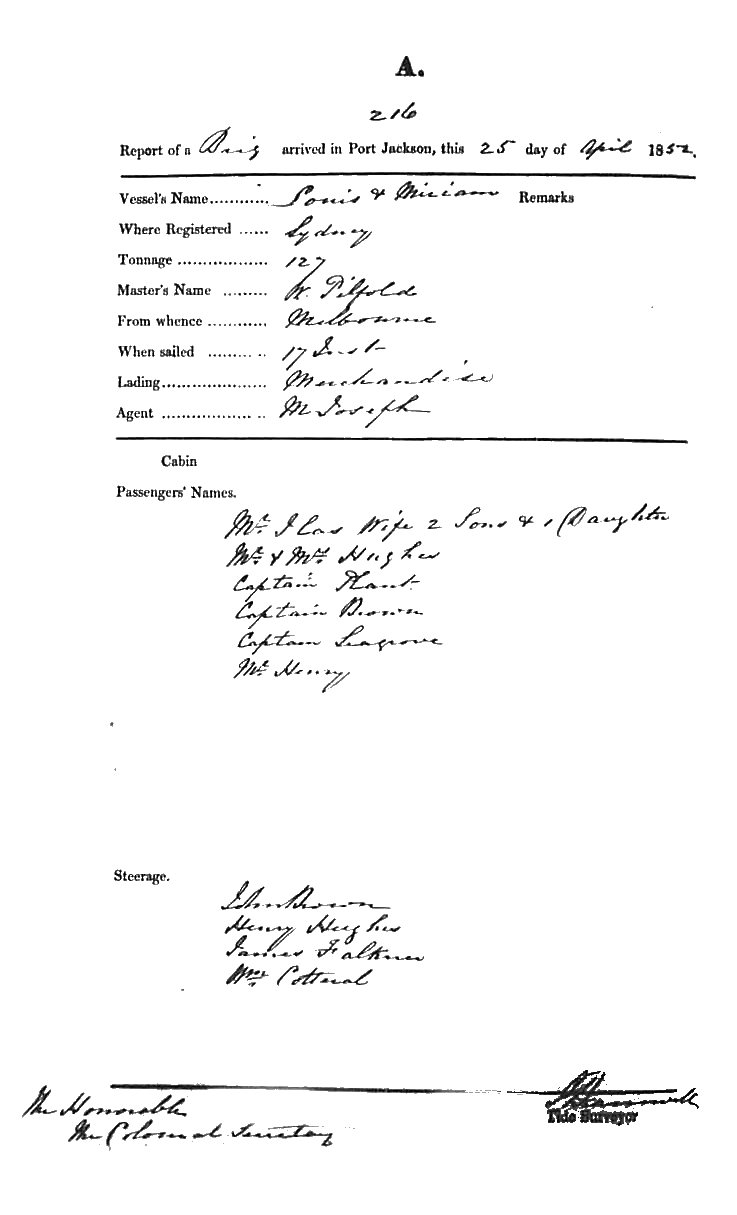 A.
216
Report of a Brig arrived in Port Jackson, this 25 day of April 1852.
Vessel's Name............ Louis & Miriam Remarks
Where Registered ...... Sydney
Tonnage .................. 127
Master's Name ......... W. Pilfold
From whence ............ Melbourne
When sailed ......... .. 17 Inst
Lading..................... Merchandise
Agent .................. .. M Joseph
Cabin
Passengers' Names.
Mr. Wife 2 Sons & 1 Daughter
Mr. & Mrs. Hughes
Captain Plant
Captain Brown
Captain Seagrove
Mr. Henry
Steerage.
John Brown
Henry Hughes
James Falkner
Wm Cotteral
Tide Surveyor
The Honorable
The Colonial Secretary